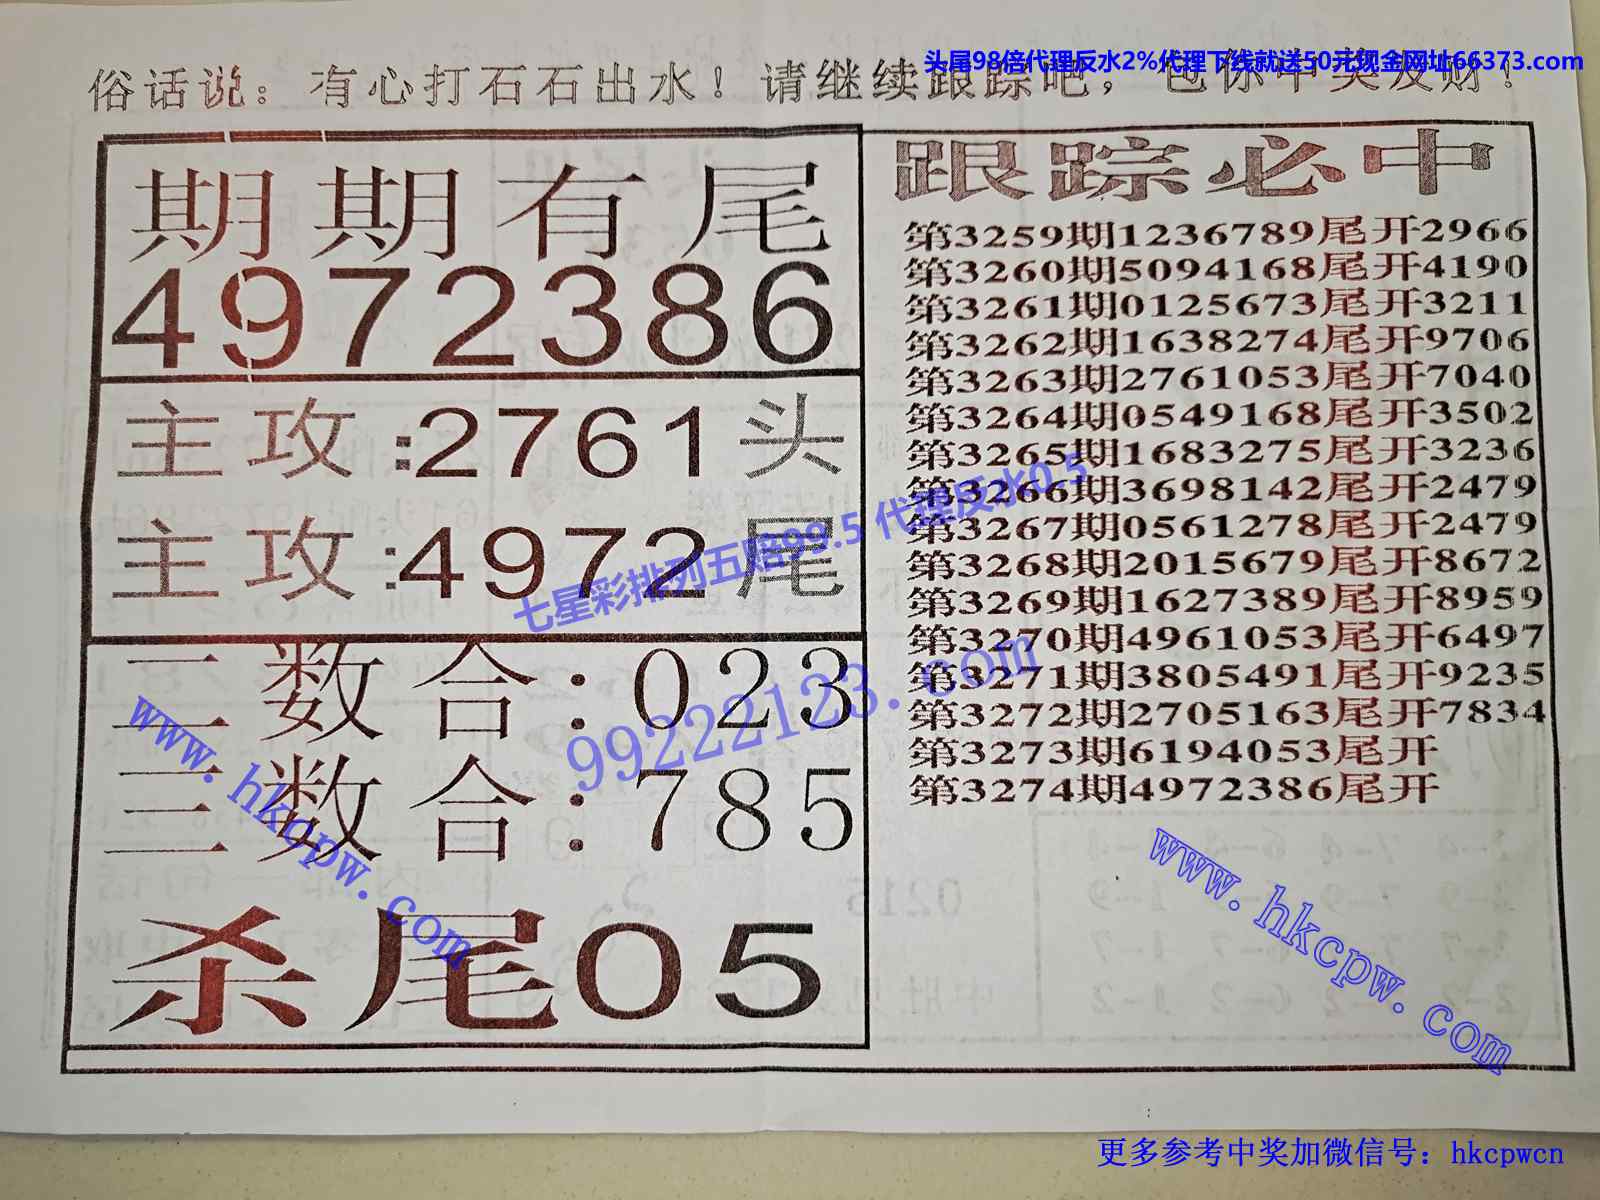 头尾98倍代理反水2%代理下线就送50元现金网址66373.com
俗话说：有心打石石出水！请继续跟踪吧，包你中奖发财！
期期有尾
4972386
主攻:2761头
主攻:4972尾
二数合:023
三数合:785
杀尾05
跟踪必中
第3259期1236789尾开2966
第3260期5094168尾开4190
第3261期0125673尾开3211
第3262期1638274尾开9706
第3263期2761053尾开7040
第3264期0549168尾开3502
第3265期1683275尾开3236
第3266期3698142尾开2479
第3267期0561278尾开2479
第3268期2015679尾开8672
第3269期1627389尾开8959
第3270期4961053尾开6497
第3271期3805491尾开9235
第3272期2705163尾开7834
第3273期6194053尾开
第3274期4972386尾开
七星彩排列五赔99.5 代理反水0.5
99222123.com
www.hkcpw.com
www.hkcpw.com
更多参考中奖加微信号：hkcpwcn